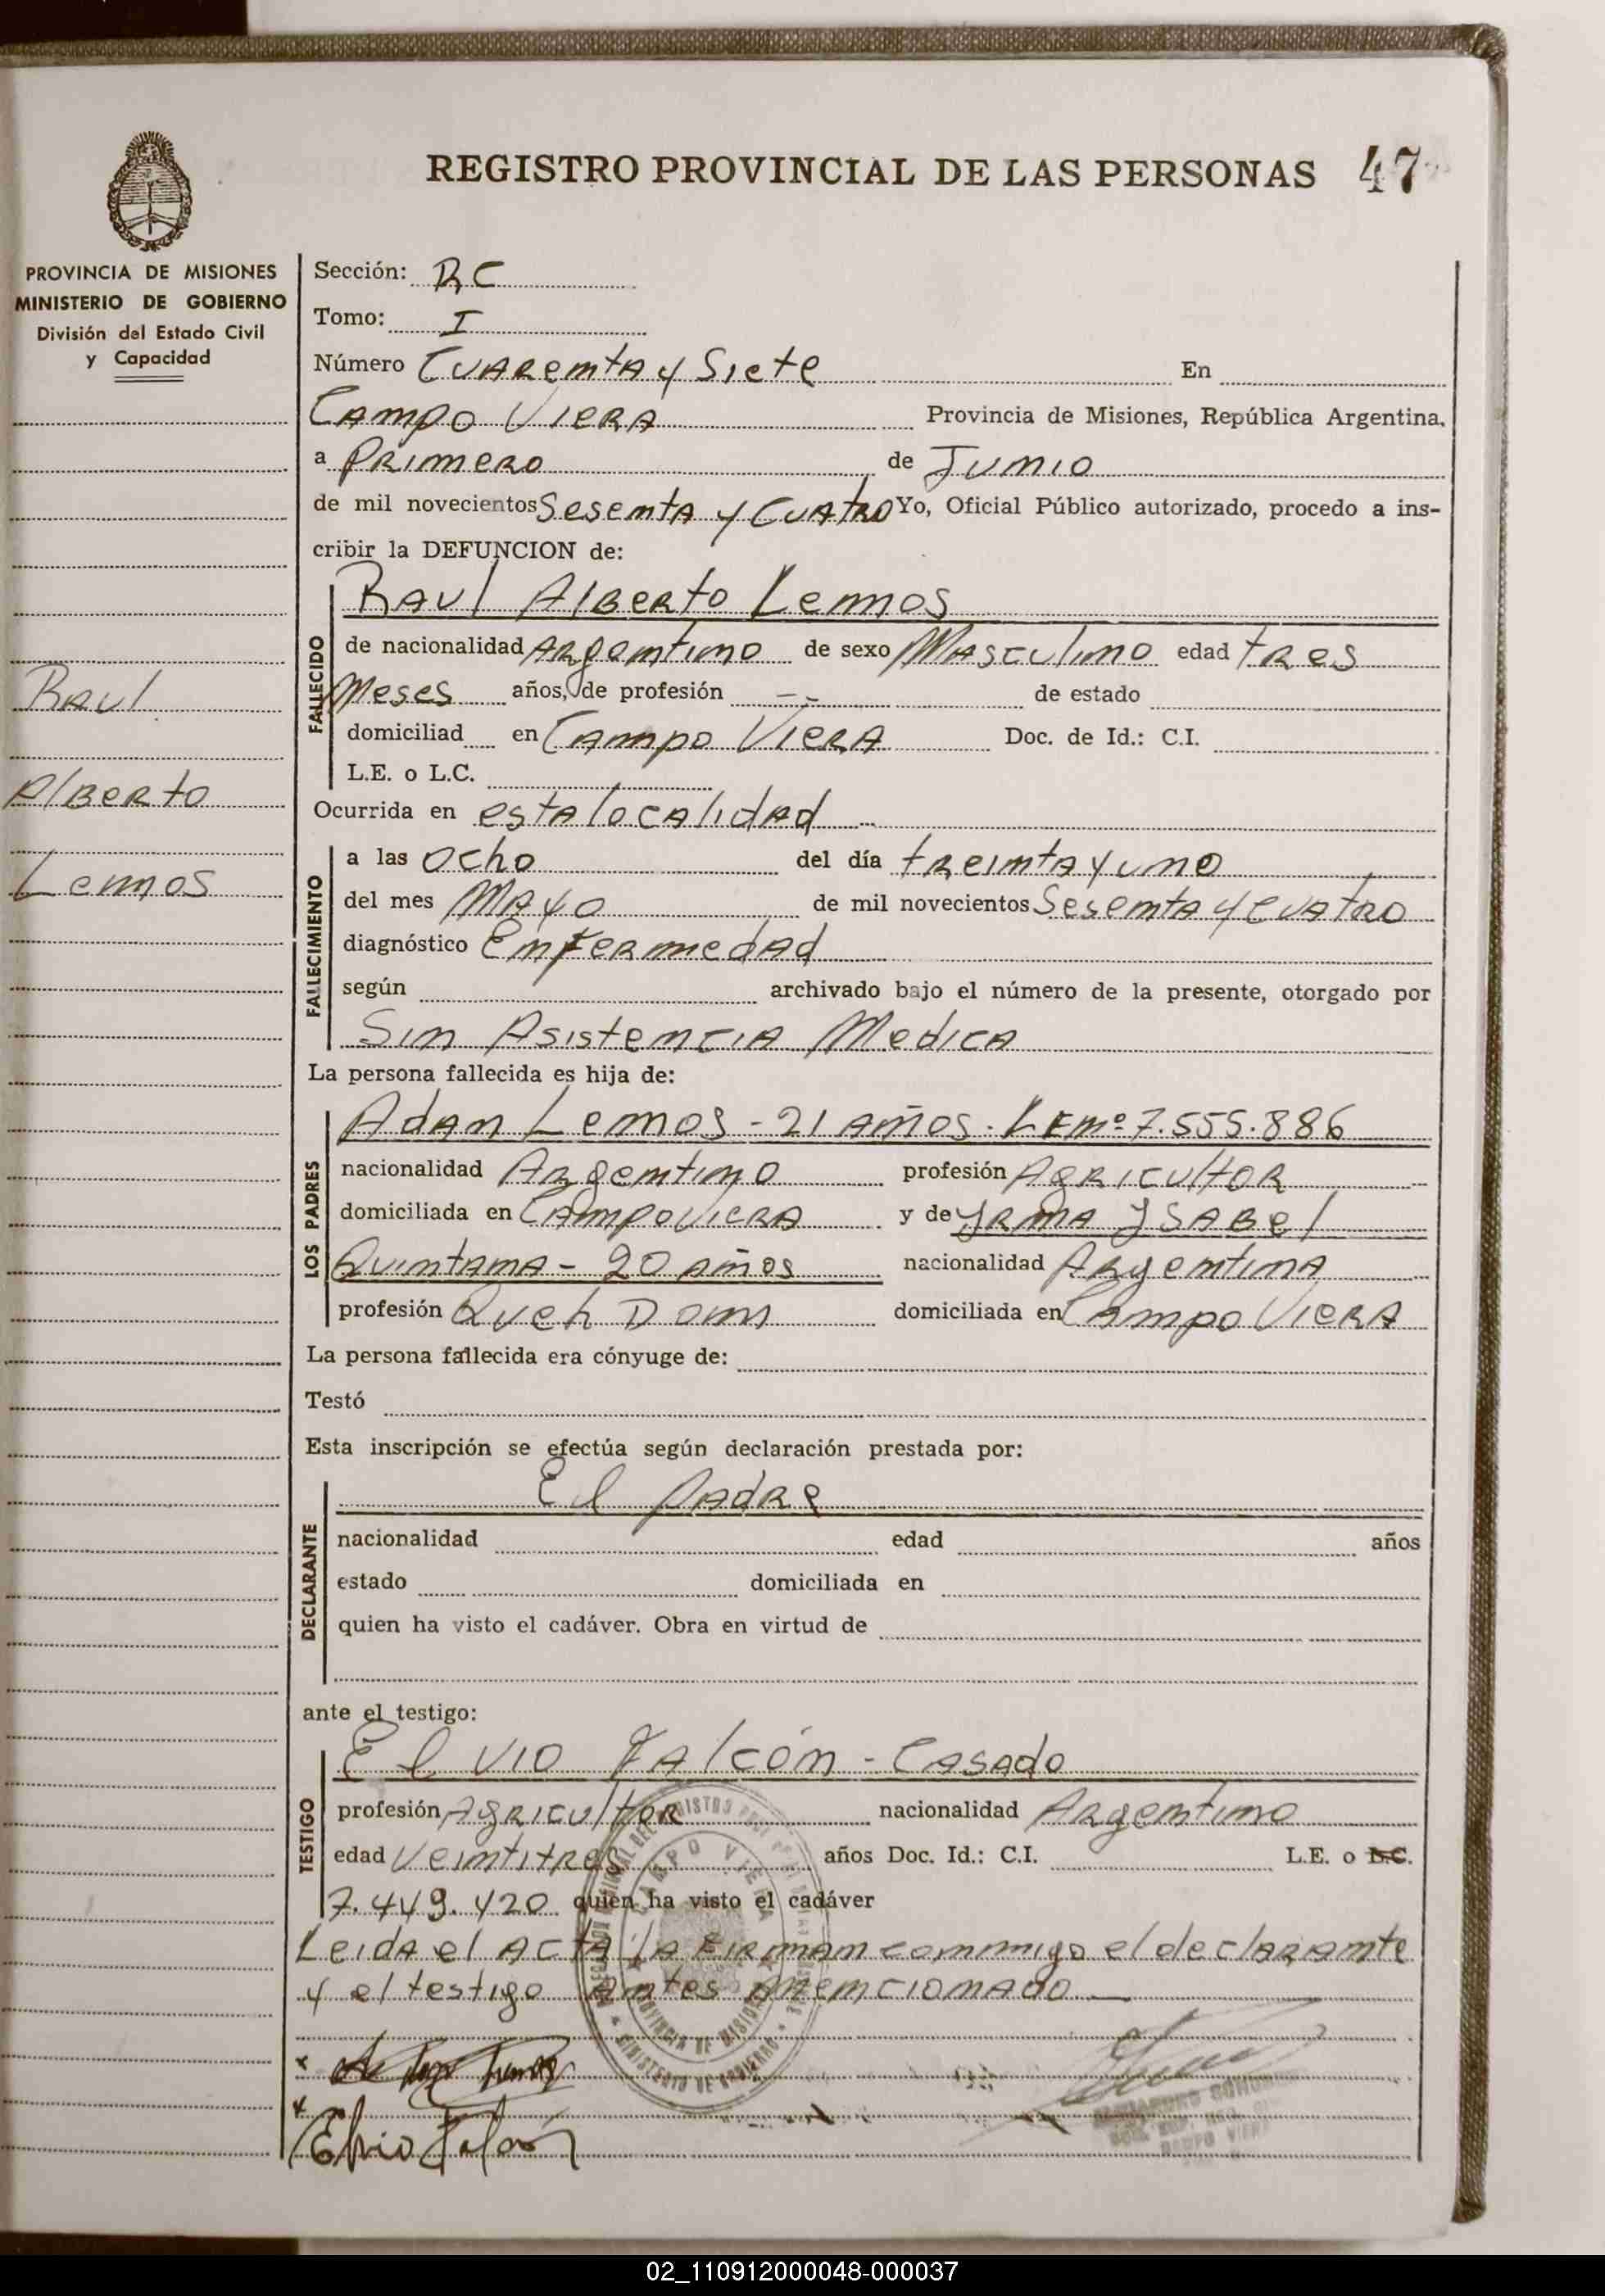 REGISTRO PROVINCIAL DE LAS PERSONAS 47
PROVINCIA DE MISIONES
MINISTERIO DE GOBIERNO
División del Estado Civil
y Capacidad
Raul
Alberto
Lemos
Sección: RC
Tomo: I
Número Cuarenta y Siete En
Campo Viera Provincia de Misiones, República Argentina,
a Primero de Junio
de mil novecientos Sesenta y Cuatro Yo, Oficial Público autorizado, procedo a ins-
cribir la DEFUNCION de:
FALLECIDO
Raul Alberto Lemos
de nacionalidad Argentino de sexo Masculino edad tres
Meses años, de profesión -- de estado
domiciliad en Campo Viera Doc. de Id.: C.I.
L.E. o L.C.
Ocurrida en esta localidad
FALLECIMIENTO
a las Ocho del día treinta y uno
del mes Mayo de mil novecientos Sesenta y Cuatro
diagnóstico Enfermedad
según archivado bajo el número de la presente, otorgado por
Sin Asistencia Medica
La persona fallecida es hija de:
LOS PADRES
Adan Lemos - 21 años - LE nº 7.555.886
nacionalidad Argentino profesión Agricultor
domiciliada en Campo Viera y de Yrma Ysabel
Quintana - 20 años nacionalidad Argentina
profesión Queh Dom domiciliada en Campo Viera
La persona fallecida era cónyuge de:
Testó
Esta inscripción se efectúa según declaración prestada por:
DECLARANTE
El Padre
nacionalidad edad años
estado domiciliada en
quien ha visto el cadáver. Obra en virtud de
ante el testigo:
TESTIGO
Elvio Falcón - Casado
profesión Agricultor nacionalidad Argentino
edad Veintitres años Doc. Id.: C.I. L.E. o L.C.
7.449.420 quien ha visto el cadáver
Leida el Acta la Firman conmigo el declarante
y el testigo antes mencionado
CAMPO VIERA
PROVINCIA DE MISIONES
MINISTERIO DE GOBIERNO
Elvio Falcón
CAMPO VIERA
02_110912000048-000037